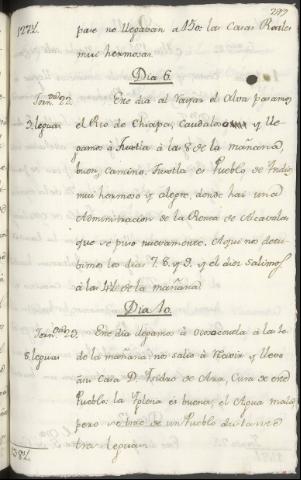 292
1274. pare no llegaban a 150: las Casas Reales
mui hermosas.
Dia 6.
Jorn.da 22. Este dia al rayar el Alva pasamos
el Rio de Chiapa, Caudaloso y lle
3 leguas gamos à Tustla à las 8 de la mañana,
buen camino. Tustla es Pueblo de Indios
mui hermoso y alegre, donde hai una
Administracion de la Renta de Alcavalas,
que se puso nuevamente. Aqui nos detu
bimos los dias 7. 8. y 9. y el diez salimos
à las 4 de la mañana
Dia 10.
Jorn.da 23. Este dia llegamos à Ocosocoutla à las 10
8. leguas de la mañana: nos salio à recivir y llevo
à su Casa D. Isidro de Ara, Cura de este
Pueblo: la Iglesia es buena; el Agua mala,
pero se trae de un Pueblo distante
tres leguas.